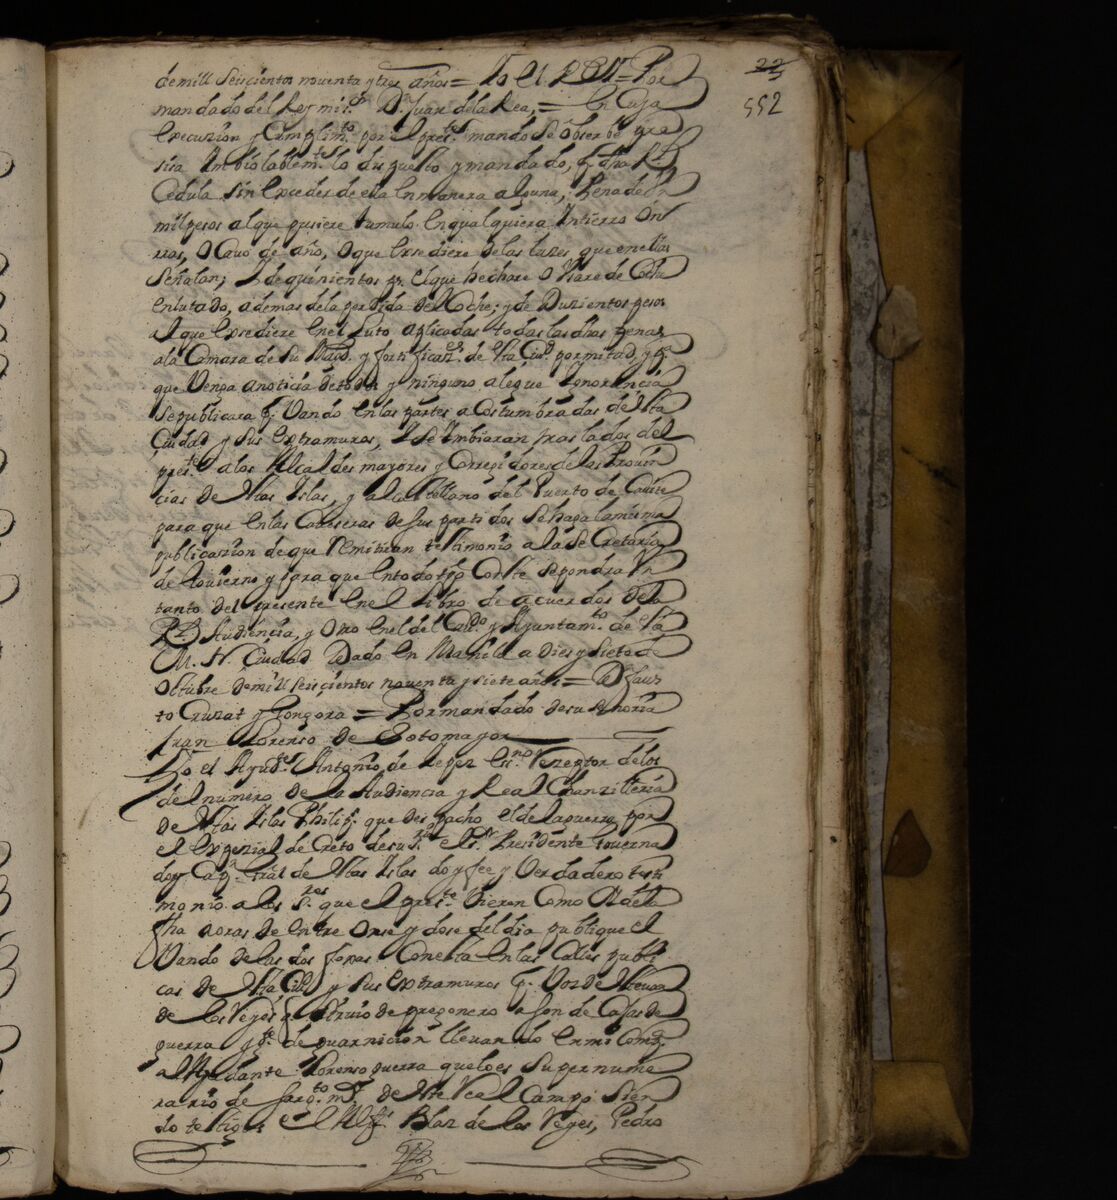 22
552
de mill seiscientos noventa y tres años = Yo el Rey = Por
mandado del Rey mi sr. Dn. Juan de la Rea, = En cuya
execusion y Cumplimto. por el preste. mando se obserbe y
imbiolablemte. lo dispuesto y mandado, dha Rl.
Cedula sin exceder de ella en manera alguna; Pena de Un
mil pesos al que pusiere tumulo en qualquiera Intierro on
rras, o Cavo de año, o que exsediere de las luses que en ellas
Señalan; y de quinientos ps. el que hechare o Usare de Coche
enlutado, ademas de la perdida del Coche; y de Dusientos pesos
al que exsediere en el luto aplicadas todas las dhas penas
a la Camara de su Magd. y fortificazes. de esta Ciud. por mitad, y pa.
que Venga a noticia de todos y ninguno alegue Ignorancia
se publicara pr. Vando en las partes acostumbradas de esta
Ciudad y sus extramuros, y se Imbiaran traslados del
preste. a los Alcaldes mayores y Corregidores de las Provin
cias de estas Islas, y al castellano del Puerto de Cavite
para que en las Cabeseras de sus partidos se haga la misma
publicasion de que Remitiran testimonio a la Secretaria
de Govierno y para que en todo tpo Coste se pondra Un
tanto del presente en el Libro de acuerdos de la
Rl. Audiencia, y otro en el del Cavdo. y Ayuntamto. de esta
M. N. Ciudad Dado en Manila a dies y siete de
Octubre de mill seiscientos noventa y siete años = Dn Faus
to Cruzat y Gongora = Por mandado de su señoria
Fran Lorenso de Sotomayor
Yo el Ayudte. Antonio de Yepez esno. Reseptor de los
del numero de la Audiencia y Real Chanzilleria
de estas Islas Philips. que despacho el de la guerra por
el espezial decreto de su sa. el sr. Presidente Governa
dor y Capn. Gral de estas Islas doy fee y Verdadero testi
monio a los sres. que el preste. Vieren Como oy dia de la
fha a oras de entre onse y dose del dia publique el
Vando de las dos foxas Con esta en las Calles publi
cas de esta Ciud. y sus extramuros pr. Voz de Estevan
de los Reyes que sirvio de pregonero a son de Caxas de
guerra y gte. de guarnicion llevando en mi Compa.
al Ayudante Lorenso guerra que lo es supernume
rario de sargto. mr. de este Rl Campo Sien
do testigos el Alfs. Blas de los Reyes, Pedro